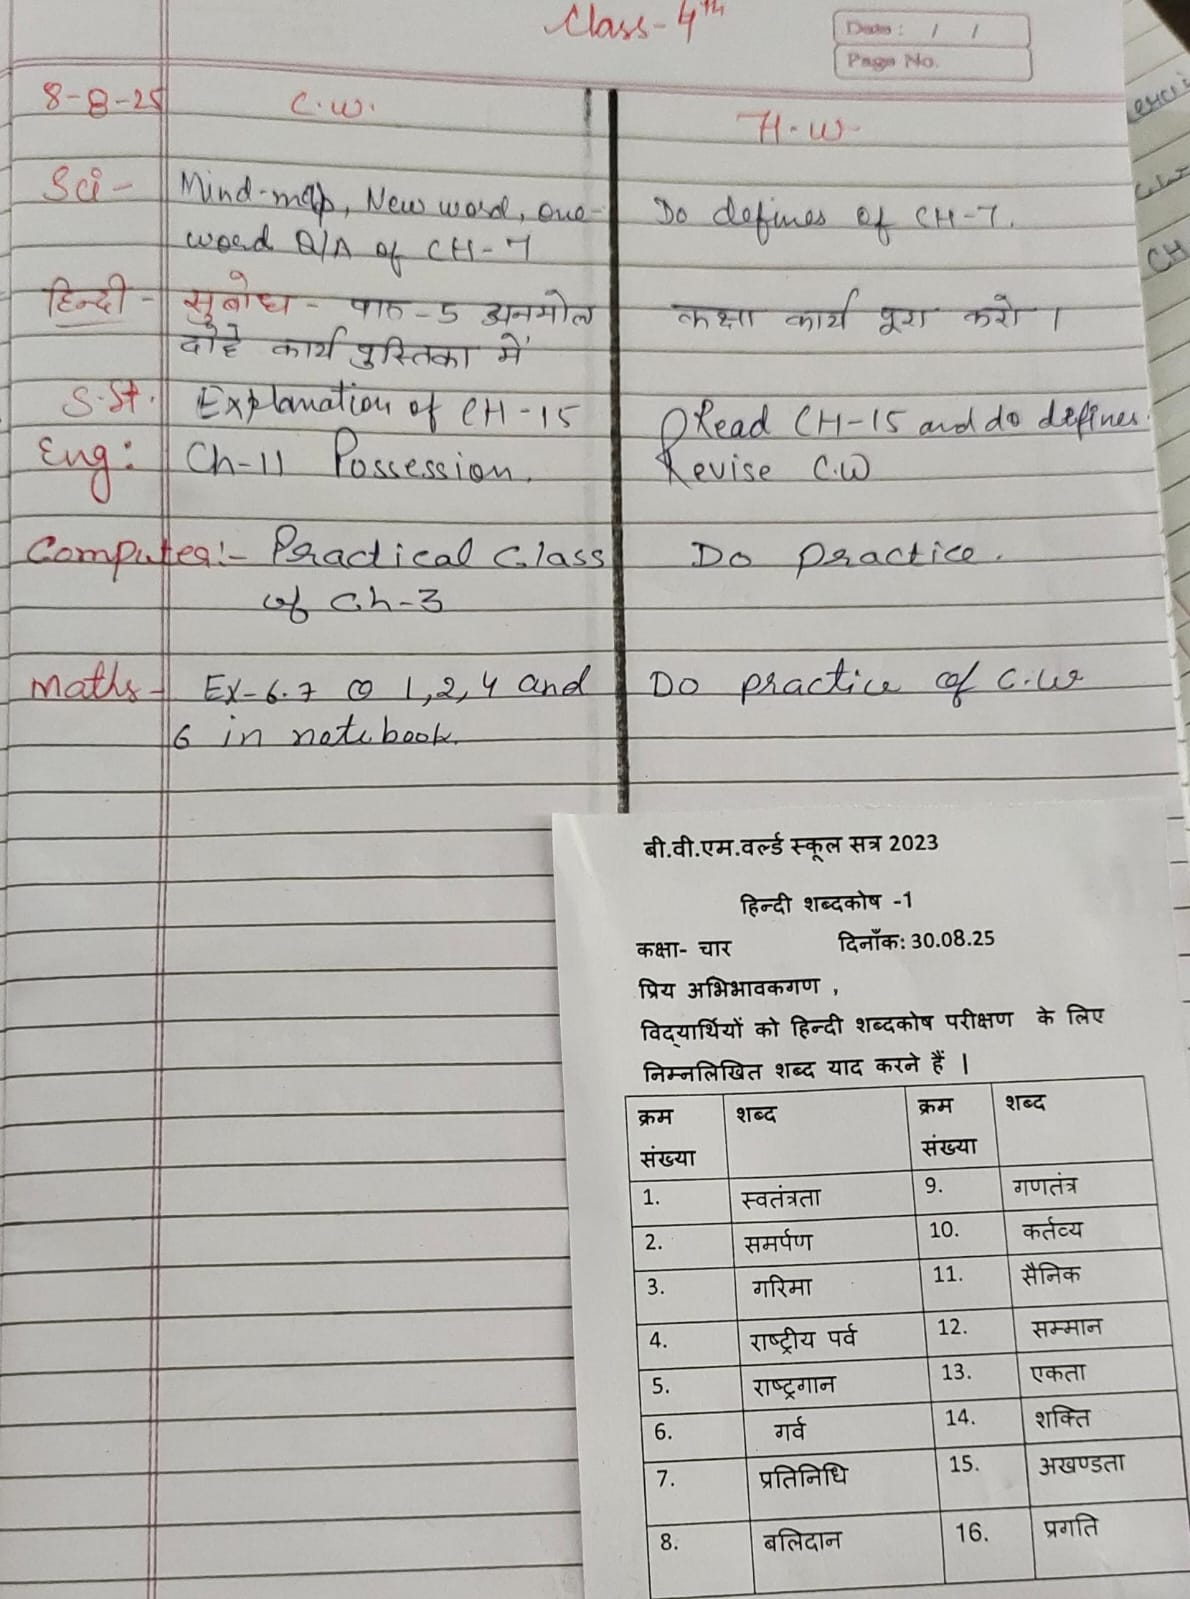 Class-4th
Date: / /
Page No.
8-8-25 C.W. H.W
Sci- Mind-map, New word, one- Do defines of CH-7.
word Q/A of CH-7
हिन्दी- सुबोध- पाठ-5 अनमोल कक्षा कार्य पूरा करो।
दोहे कार्य पुस्तिका में
S.St. Explanation of CH-15 Read CH-15 and do defines.
Eng: Ch-11 Possession. Revise C.W
Computer:- Practical Class Do practice.
of Ch-3
Maths- Ex-6.7 Q 1,2,4 and Do practice of C.W
6 in notebook.
CH
बी.वी.एम.वर्ल्ड स्कूल सत्र 2023
हिन्दी शब्दकोष -1
कक्षा- चार दिनाँक: 30.08.25
प्रिय अभिभावकगण ,
विद्यार्थियों को हिन्दी शब्दकोष परीक्षण के लिए
निम्नलिखित शब्द याद करने हैं ।
क्रम शब्द क्रम शब्द
संख्या संख्या
1. स्वतंत्रता 9. गणतंत्र
2. समर्पण 10. कर्तव्य
3. गरिमा 11. सैनिक
4. राष्ट्रीय पर्व 12. सम्मान
5. राष्ट्रगान 13. एकता
6. गर्व 14. शक्ति
7. प्रतिनिधि 15. अखण्डता
8. बलिदान 16. प्रगति